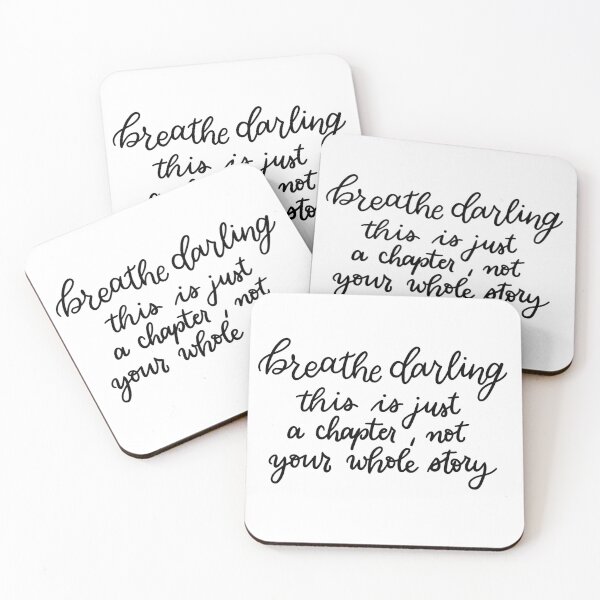 breathe darling
this is just
not
breathe darling
this is just
a chapter, not
your whole story
breathe darling
this is just
a chapter, not
your whole
breathe darling
this is just
a chapter, not
your whole story